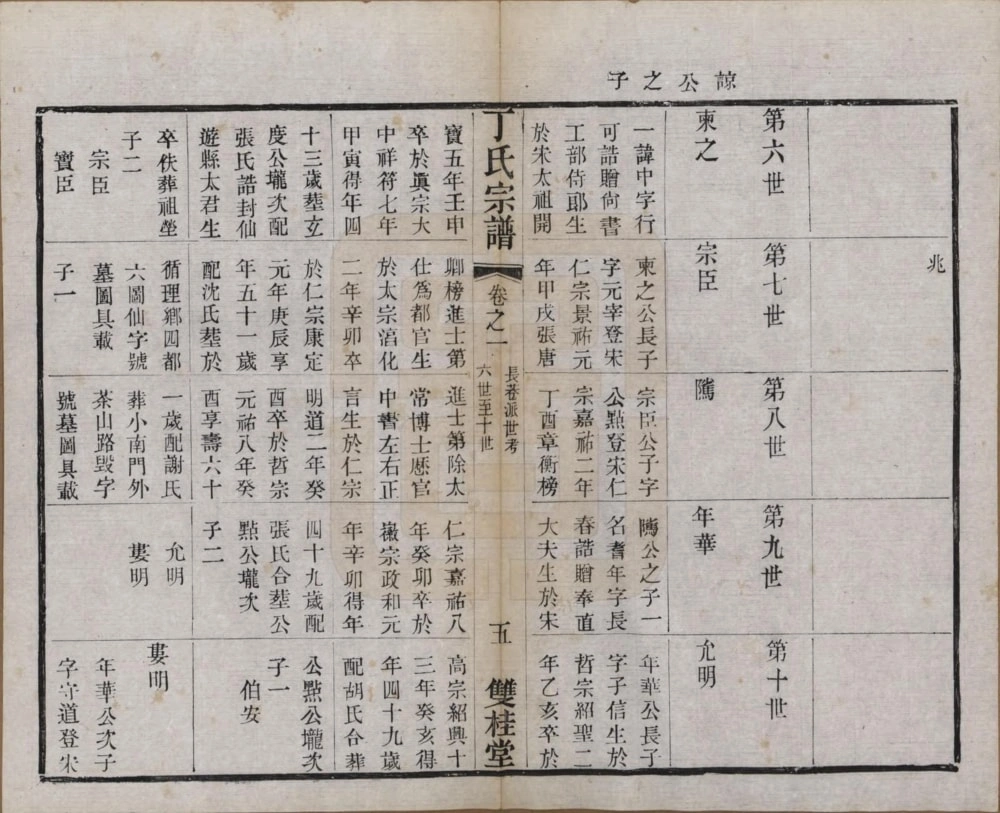 諒公之子
兆
第六世
柬之
一諱中字行
可誥贈尙書
工部侍郎生
於宋太祖開
寶五年壬申
卒於眞宗大
中祥符七年
甲寅得年四
十三歲塟玄
度公壠次配
張氏誥封仙
遊縣太君生
卒佚葬祖塋
子二
宗臣
寳臣
第七世
宗臣
柬之公長子
字元宰登宋
仁宗景祐元
年甲戌張唐
卿榜進士第
仕爲都官生
於太宗淊化
二年辛卯卒
於仁宗康定
元年庚辰享
年五十一歲
配沈氏塟於
循理鄉四都
六圖仙字號
墓圖具載
子一
第八世
隲
宗臣公子字
公點登宋仁
宗嘉祐二年
丁酉章衡榜
進士第除太
常博士歷官
中書左右正
言生於仁宗
明道二年癸
酉卒於哲宗
元祐八年癸
酉享壽六十
一歲配謝氏
葬小南門外
茶山路毀字
號墓圖具載
第九世
年華
隲公之子一
名耆年字長
春誥贈奉直
大夫生於宋
仁宗嘉祐八
年癸卯卒於
徽宗政和元
年辛卯得年
四十九歲配
張氏合塟公
點公壠次
子二
允明
婁明
第十世
允明
年華公長子
字子信生於
哲宗紹聖二
年乙亥卒於
高宗紹興十
三年癸亥得
年四十九歲
配胡氏合葬
公點公壠次
子一
伯安
婁明
年華公次子
字守道登宋
丁氏宗譜
卷之一
長巷派世考
六世至十世
五
雙桂堂